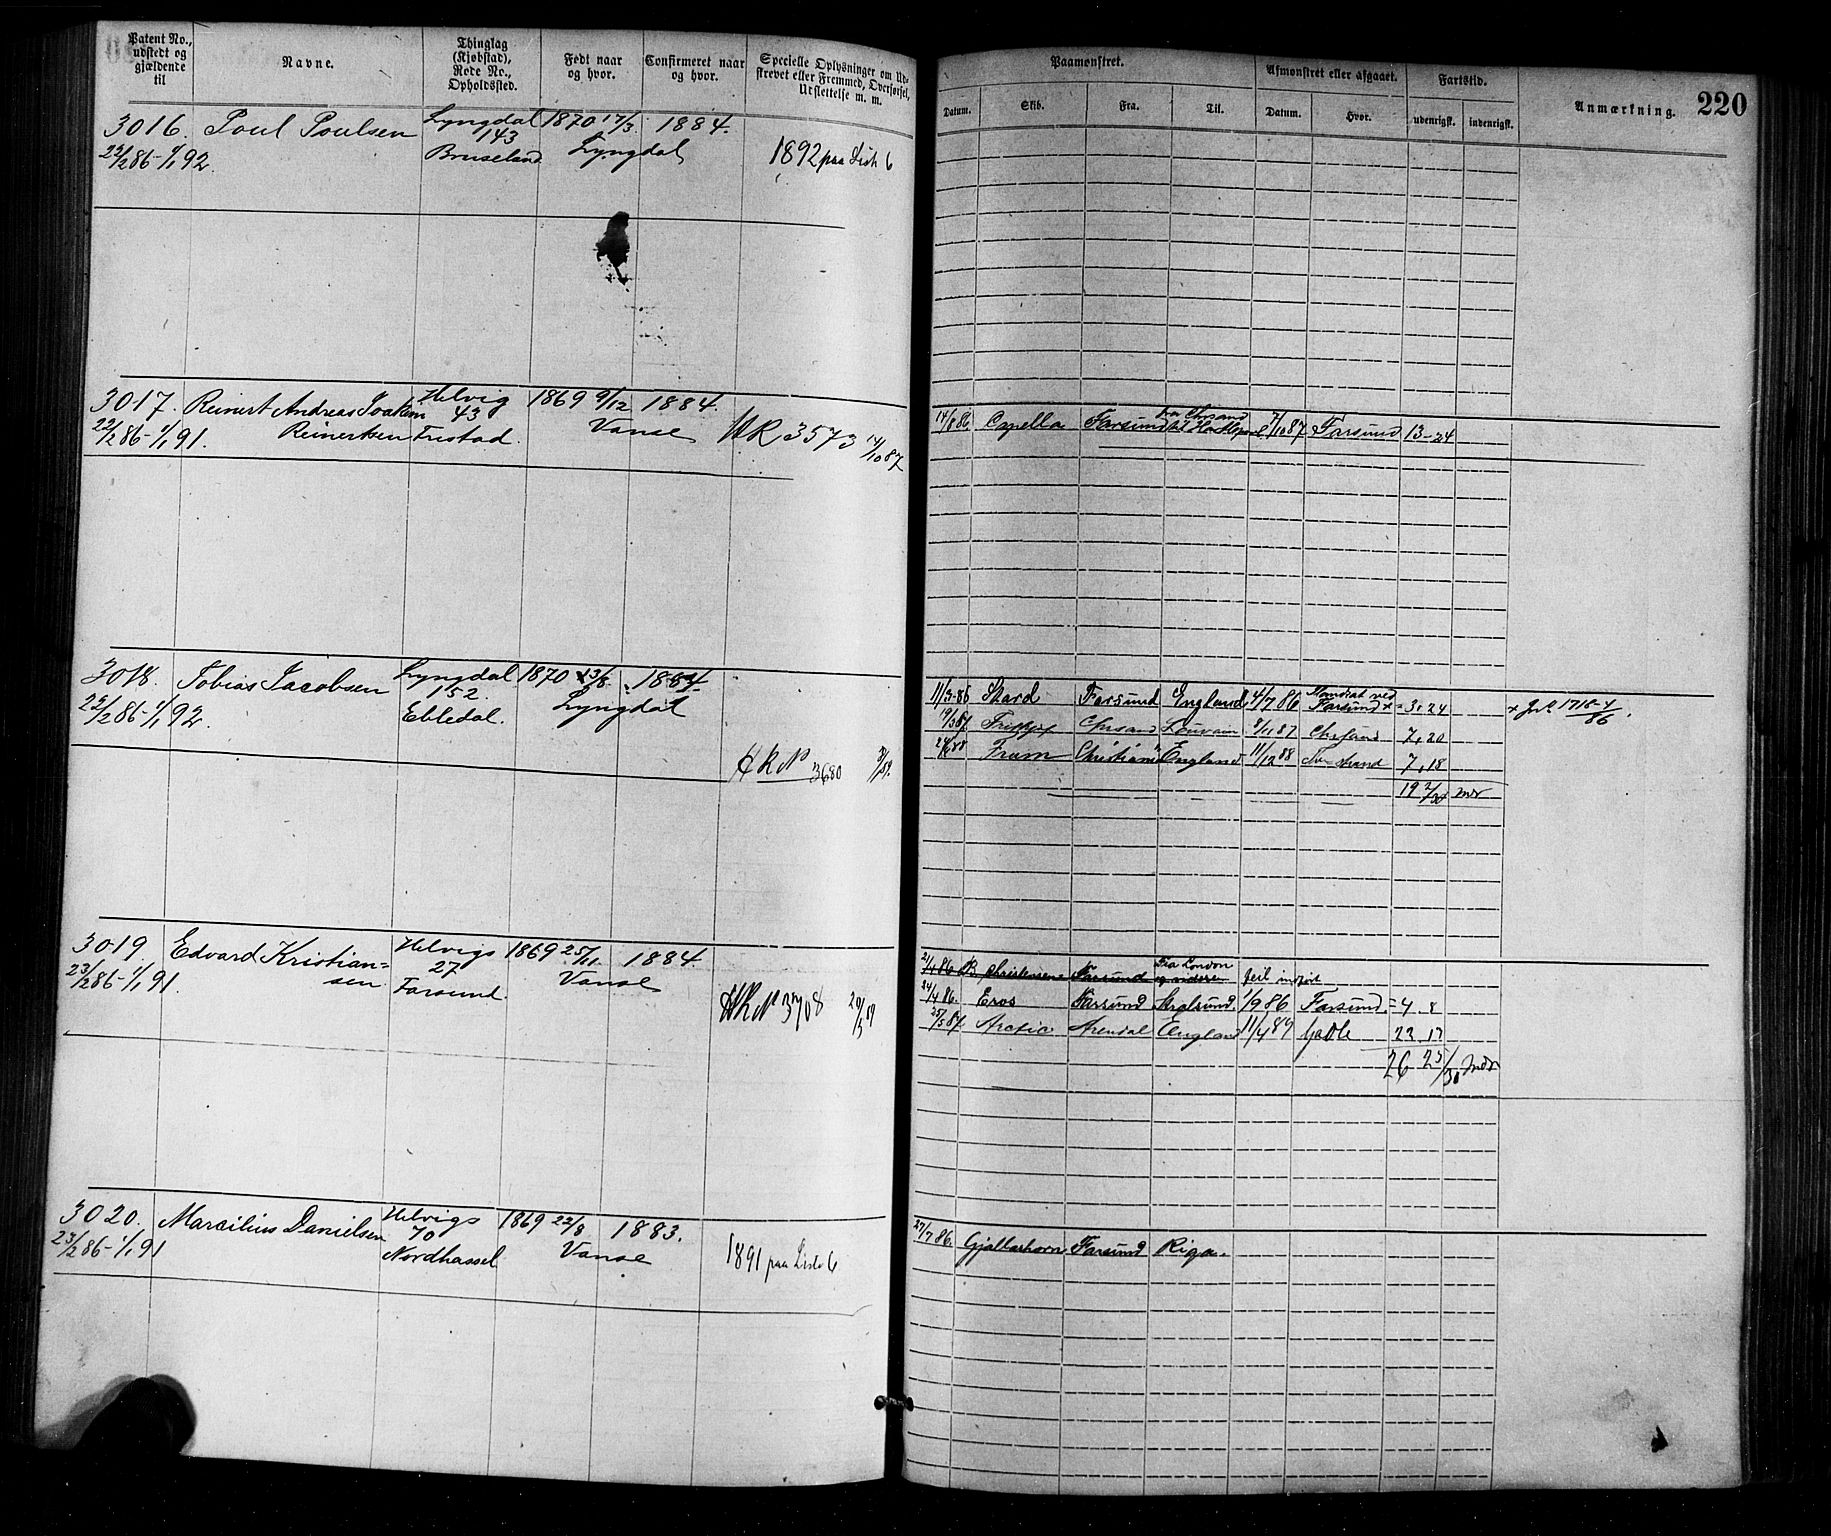 Patent No., udstedt og gjældende til
Navne.
Thinglag (Kjøbstad), Rode No., Opholdssted.
Født naar og hvor.
Confirmeret naar og hvor.
Specielle Oplysninger om Udskrevet eller Fremmed, Overførsel, Udslettelse m. m.
3016. Poul Poulsen Lyngdal 1870 17/3 1884.
143
22/2 86 - 1/1 92. Bruseland Lyngdal 1892 paa Liste 6
3017. Reinert Andreas Joakim Helvig 1869 9/12 1884.
Reinertsen 43 Vanse
22/2 86 - 1/1 91. Tristad. HR 3573 14/10 87
3018. Tobias Jacobsen Lyngdal 1870 13/8 1884.
152. Lyngdal
22/2 86 - 1/1 92. Ebledal.
HR No 3680
3019. Edvard Kristian= Helvigs 1869 25/11 1884.
sen 27 Vanse
23/2 86 - 1/1 91. Farsund. HR No 3708 20/5 89
3020. Marcilius Danielsen Helvigs 1869 22/8 1883.
70
23/2 86 - 1/1 91 Nordhassel Vanse 1891 paa Liste 6
Paamønstret.
Afmønstret eller afgaaet.
Fartstid.
Anmærkning.
220
Datum. Skib. Fra. Til. Datum. Hvor. udenrigsk. indenrigsk.
fra Chrsand
14/8 86 Capella Farsund til Hartlepool 7/10 87 Farsund 13-24
11/3-86 Skard Farsund England 4/7 86 Farsund + = 3.24 + 1718-4/86.
19/3 87. Frithjof Chrsand Louvain 8/11 87 Chrsand 7,20
Fram Christiania England 11/12 88 7,18
19 2/30 mdr
21/1 86 B. Christensen Farsund Fra London og videre feil indført
24/4 86. Eros Farsund Stralsund. 1/9 86 Farsund = 4.8
25/5 87. Arctic Arendal England 11/4 89 Gefle 22.17
26 25/30 mdr
27/7 86. Gjallarhorn Farsund Riga.